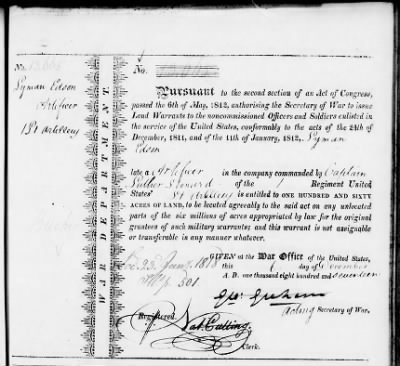 No.
Lyman Edson
Artificer
1st Artillery
WAR DEPARTMENT.
No.
Pursuant to the second section of an Act of Congress,
passed the 6th of May, 1812, authorising the Secretary of War to issue
Land Warrants to the noncommissioned Officers and Soldiers enlisted in
the service of the United States, conformably to the acts of the 24th of
December, 1811, and of the 11th of January, 1812, Lyman
Edson
late a Artificer in the company commanded by Captain
Luther Leonard of the Regiment United
States' Artillery is entitled to ONE HUNDRED AND SIXTY
ACRES OF LAND, to be located agreeably to the said act on any unlocated
parts of the six millions of acres appropriated by law for the original
grantees of such military warrants; and this warrant is not assignable
or transferable in any manner whatever.
GIVEN at the War Office of the United States,
this day of December
A. D. one thousand eight hundred and seventeen
23 Jany 1818
301
Geo: Graham
acting Secretary of War.
Registered.
Nat. Cutting,
Clerk.